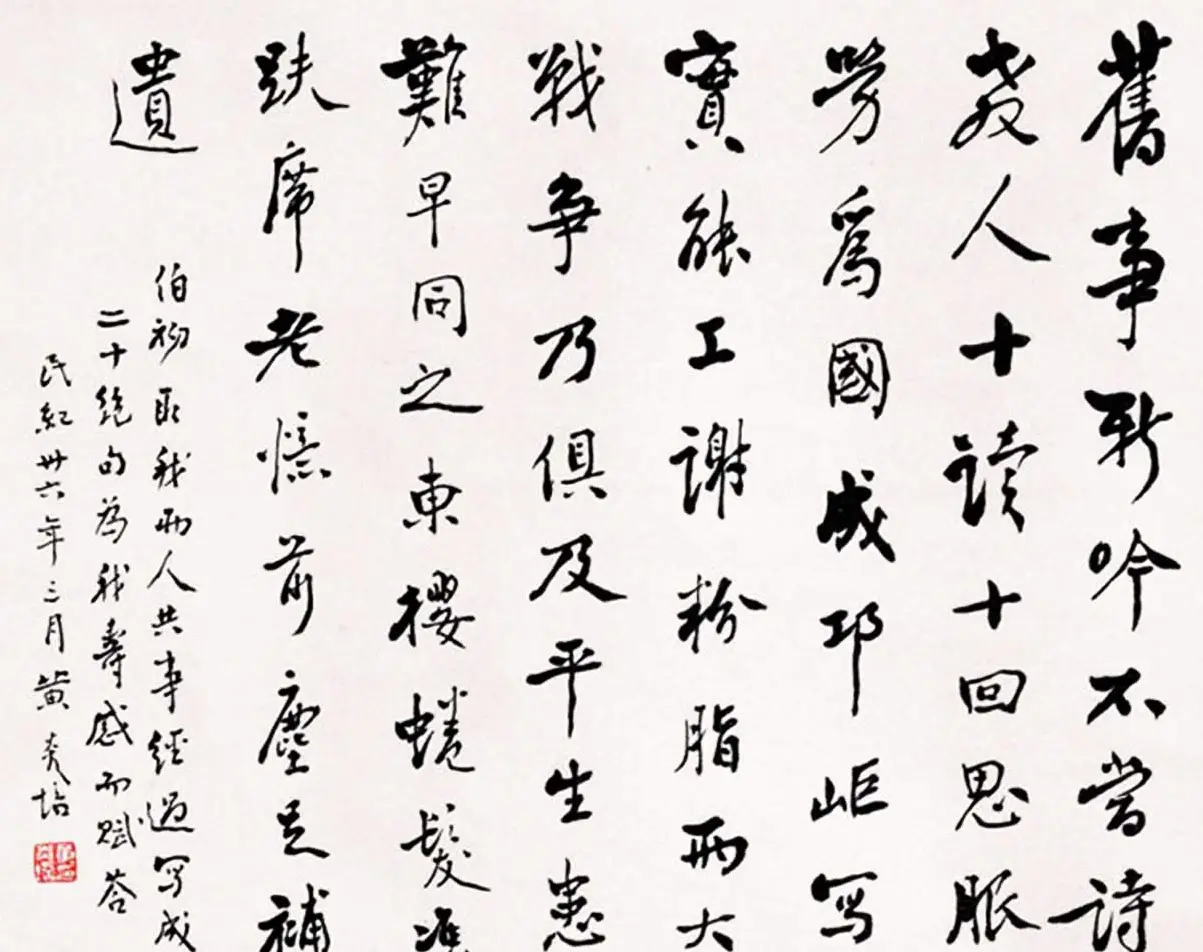 舊事新吟不當詩
教人十讀十回思服
勞爲國成邛岠寫
實能工謝粉脂兩大
戰爭乃俱及平生患
難早同之東櫻蜷髮
趺席老憶前塵足補
遺
伯初取我兩人共事經過寫成
二十絕句為我壽感而賦答
民紀卅六年三月黃炎培